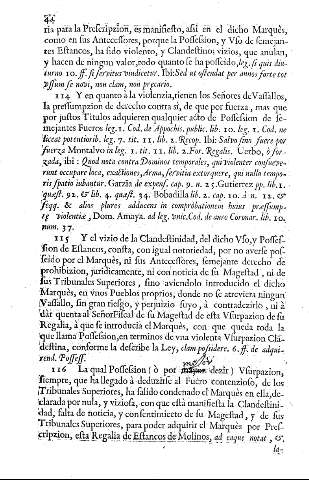 44
ria para la Prescripzion, es manifiesto, assi en el dicho Marquès,
como en sus Antecessores, porque la Possession, y Vso de semejan-
tes Estancos, ha sido violento, y Clandestino; vizios, que anulan,
y hacen de ningun valor, todo quanto se ha posseido, leg. si quis diu-
turno 10. ff. si servitus vindicetur. Ibi: Sed ut ostendat per annos forte tot
vssum se non, non clam, non precario.
114 Y en quanto à la violenzia, tienen los Señores de Vassallos,
la presumpzion de derecho contra sì, de que por fuerza, mas que
por justos Titulos adquieren qualquier acto de Possession de se-
mejantes Fueros leg. 1. Cod. de public. lib. 10. leg. 1. Cod. ne
liceat potentiorib. leg. 7. tit. 11. lib. 2. Recop. Ibi: Salvo sino fuere por
fuerza Montalvo in leg. 1. tit. 11. lib. 2. For. Regalis. Verbo, ò fu-
zada, ibi: Quod nota contra Dominos temporales, qui violenter consueve-
runt occupare loca, exactiones, Arma, servitia extorquere, qui nullo tempo-
ris spatio iubantur. Garzia de expens. cap. 9. n. 25. Gutierrez pp. lib. 1.
quæst. 92. & lib. 4. quæst. 34. Bobadilla lib. 2. cap. 10. à n. 12. &
seqq. & alios plures adducens in comprobationem huius præsump.
violentiæ, Dom. Amaya. ad leg. vnic. Cod. de auro Coronar. lib. 10.
num. 37.
115 Y el vizio de la Clandestinidad, del dicho Vso, y Posses-
sion de Estancos, consta, con igual notoriedad, por no averse pos-
seido por el Marquès, ni sus Antecessores, semejante derecho de
prohibizion, juridicamente, ni con noticia de su Magestad, ni de
sus Tribunales Superiores, sino aviendolo introducido el dicho
Marquès, en vnos Pueblos proprios, donde no se atreviera ningun
Vassallo, sin gran riesgo, y perjuizio suyo, à contradezirlo, ni à
dàr quenta al Señor Fiscal de su Magestad de esta Vsurpazion de su
Regalia, à que se introducia el Marquès, con que queda toda la
que llaman Possession, en terminos de vna violenta Vsurpazion Cla-
destina, conforme la describe la Ley, clam possidere. 6. ff. de adqui-
rend. Possess.
mejor
116 La qual Possession (ò por dezir) Vsurpazion,
siempre, que ha llegado à deduzirse al Fuero contenzioso, de los
Tribunales Superiores, ha salido condenado el Marquès en ella, de-
clarada por nula, y viziosa, con que està manifiesta la Clandestini-
dad, falta de noticia, y consentimiento de su Magestad, y de sus
Tribunales Superiores, para poder adquirir el Marquès por Pres-
cripzion, esta Regalia de Estancos de Molinos, ad eaque notat, &c.
la-